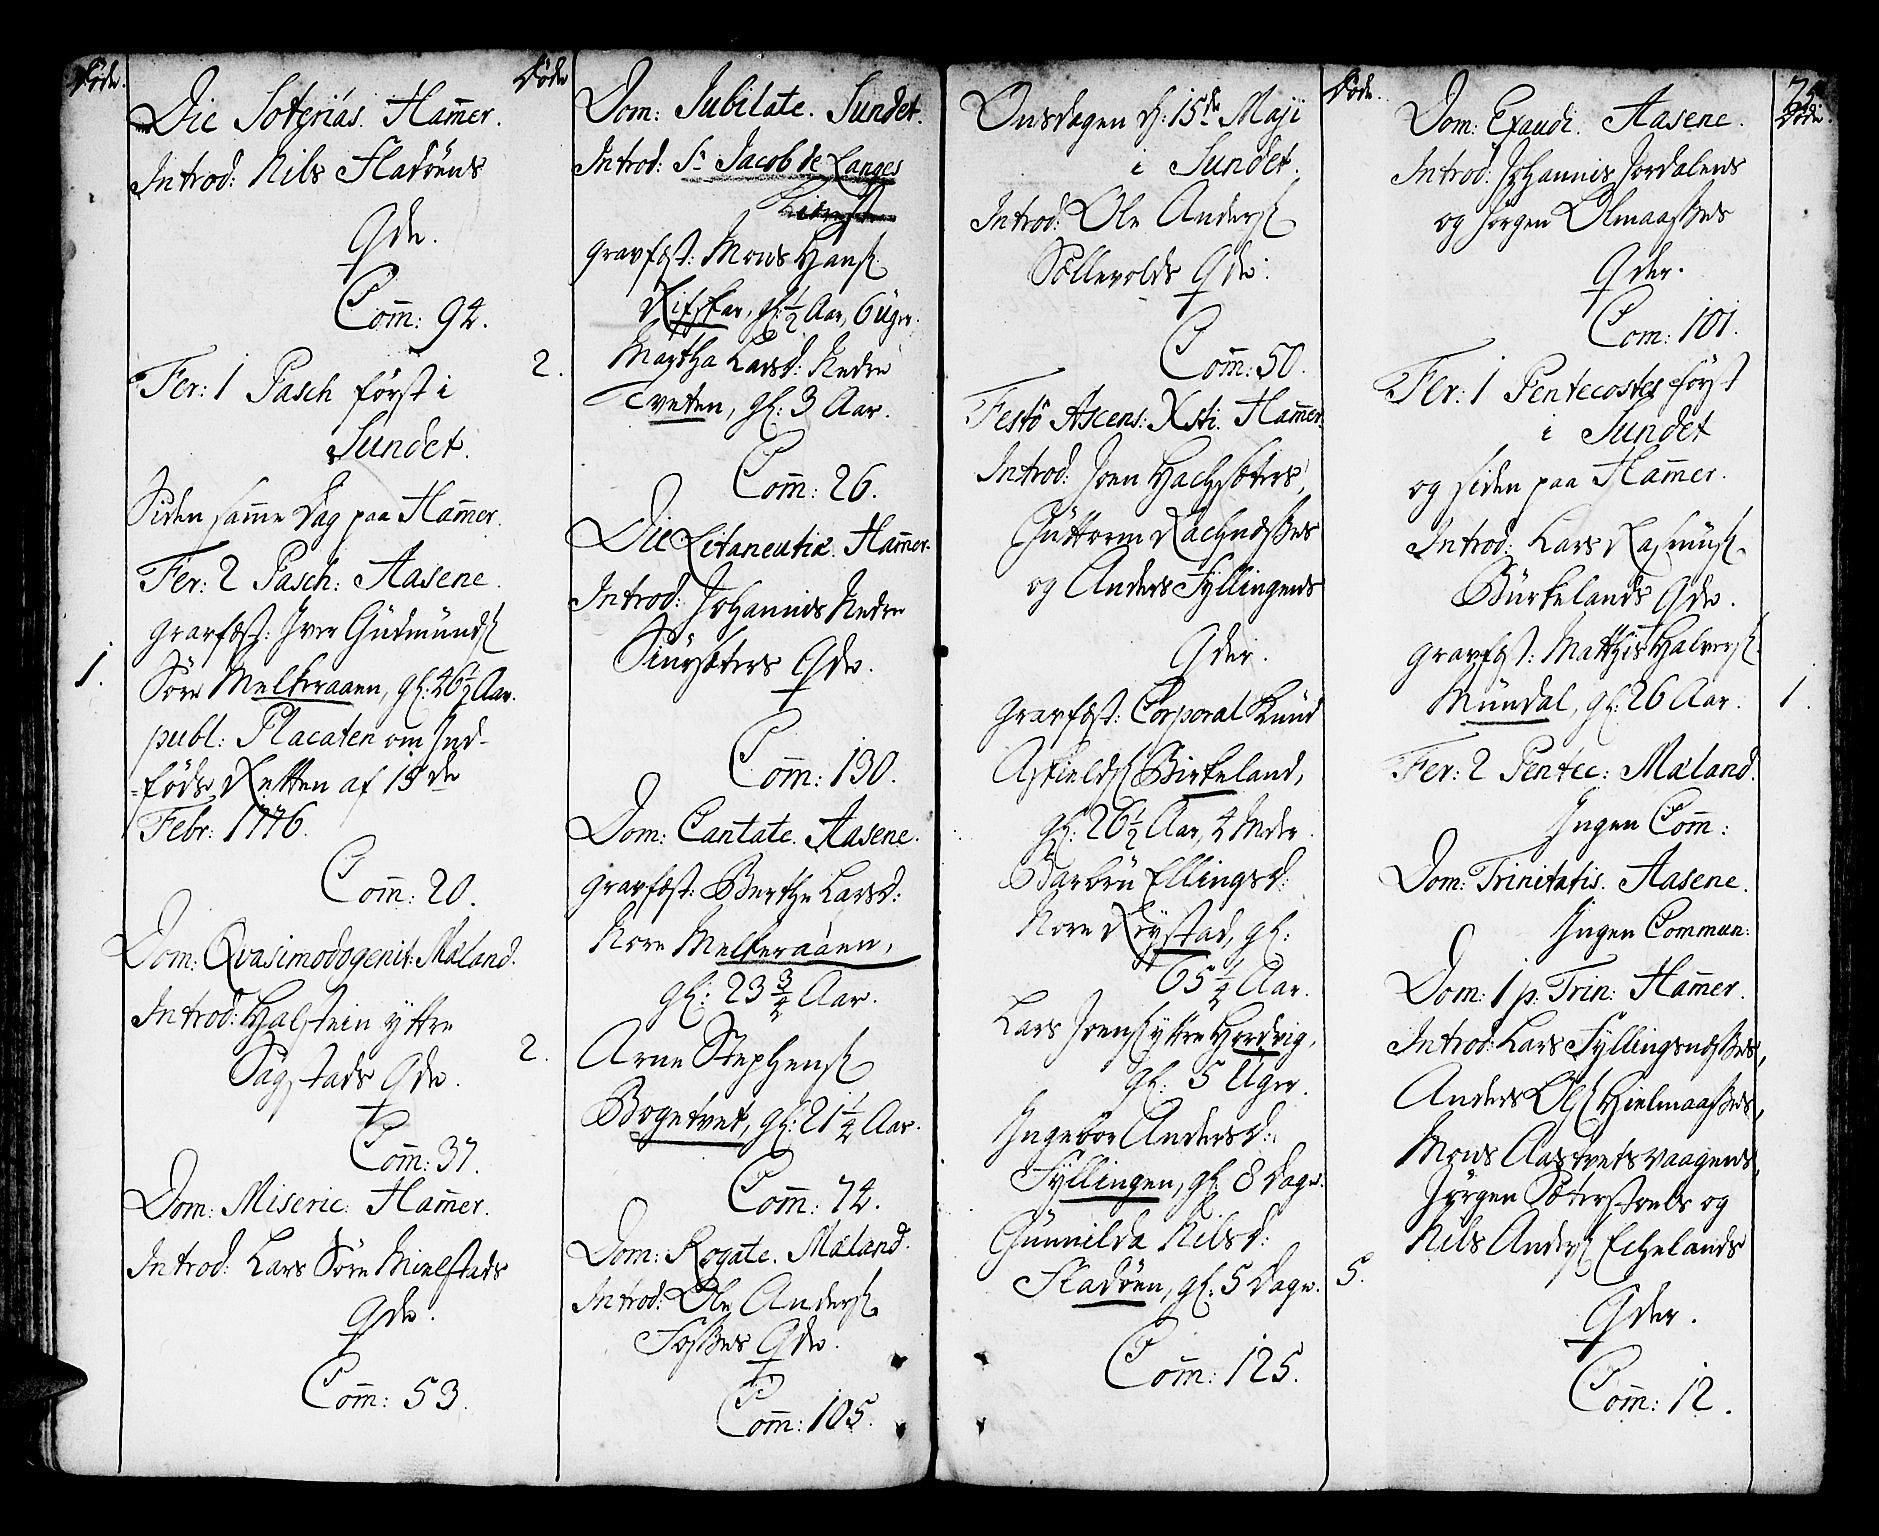 Døde.
Die Soterias. Ham̄er.
Introd: Nils Fladøens
Qde.
Com̄: 94.
Fer: 1 Pasch først i
Sundet.
Siden sam̄e Dag paa Ham̄er.
Fer: 2 Pasch: Aasene.
gravfæst: Iver Gudmunds.
1.
Søre Melkeraaen, gl: 46½ Aar.
publ: Placaten om Ind-
føds Retten af 15de
Febr: 1776.
Com̄: 20.
Dom: Qvasimodogenit: Mæland.
Introd: Halstein yttre
Sagstads Qde.
Com̄: 37.
Dom: Miseric: Ham̄er.
Introd: Lars Søre Mielstads
Qde.
Com̄: 53.
Døde
Dom: Jubilate. Sundet.
Introd: Sr. Jacob de Langes
gravfæst: Mons Hans.
Risskar, gl: ½ Aar, 6 Uger.
2.
Martha Larsd: Nedre
Tveten, gl: 3 Aar.
Com̄: 26.
Die Litaneutiæ. Ham̄er.
Introd: Johannis Nedre
Qde.
Com̄: 130.
Dom: Cantate. Aasene.
gravfæst: Berthe Larsd:
Nore Melkeraaen,
gl: 23¾ Aar.
2.
Arne Stephens.
Bogetvet, gl: 21¼ Aar.
Com̄: 74.
Dom: Rogate. Mæland.
Introd: Ole Anders.
Fosses Qde.
Com̄: 105.
Onsdagen d: 15de Maji
i Sundet.
Introd: Ole Anders.
Søllevolds Qde.
Com̄: 50.
Festo Ascens: Xsti. Ham̄er.
Introd: Joen Hachsøters,
Guttorm Rachnæsses
og Anders Fyllingens
Qder.
gravfæst: Corporal Knud
Askields. Birkeland,
gl: 26½ Aar, 4 Mdr.
Barbru Ellingsd:
Nore Røystad, gl:
65¼ Aar.
Lars Joens. yttre Hordvig,
gl: 5 Uger.
Ingebor Andersd:
Fyllingen, gl: 8 Dage.
Gunnilda Nilsd:
Fladøen, gl: 5 Dage.
Com̄: 125.
Døde.
5.
75
Døde.
Dom: Exaudi. Aasene.
Introd: Johannis Jordalens
og Jørgen Olmaasses
Qder.
Com: 101.
Fer: 1 Pentecostes først
i Sundet
og siden paa Ham̄er.
Introd: Lars Rasmus.
Burkelands Qde.
gravfæst: Matthis Halvors.
Mundal, gl: 26 Aar. 1.
Fer: 2 Pentec: Mæland.
Ingen Com̄:
Dom: Trinitatis. Aasene.
Ingen Commun:
Dom: 1 p. Trin: Ham̄er.
Introd: Lars Fyllingsnæsses,
Anders Ols. Hielmaasses,
Mons Aastvetsvaagens,
Jørgen Søterstøels og
Nils Anders. Echelands
Qder.
Com̄: 12.